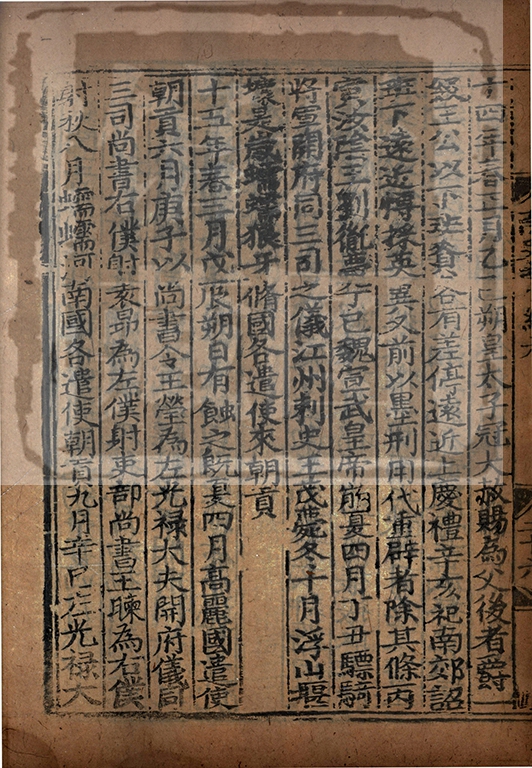 十四年春正月乙巳朔皇太子冠大赦賜為父後者爵一
級王公以下班賚各有差停遠近上慶禮辛亥祀南郊詔
班下遠近博採英異又前以墨刑用代重辟者除其條丙
寅汝陰王劉胤薨行已魏宣武皇帝崩夏四月丁丑驃騎
將軍開府同三司之儀江州刺史王茂薨冬十月浮山堰
壞是歲蠕蠕狼牙脩國各遣使來朝貢
十五年春三月戊辰朔日有蝕之既夏四月高麗國遣使
朝貢六月庚子以尚書令王瑩為左光祿大夫開府儀同
三司尚書右僕射袁昂為左僕射吏部尚書王暕為右僕
射秋八月蠕蠕河南國各遣使朝貢九月辛巳左光祿大